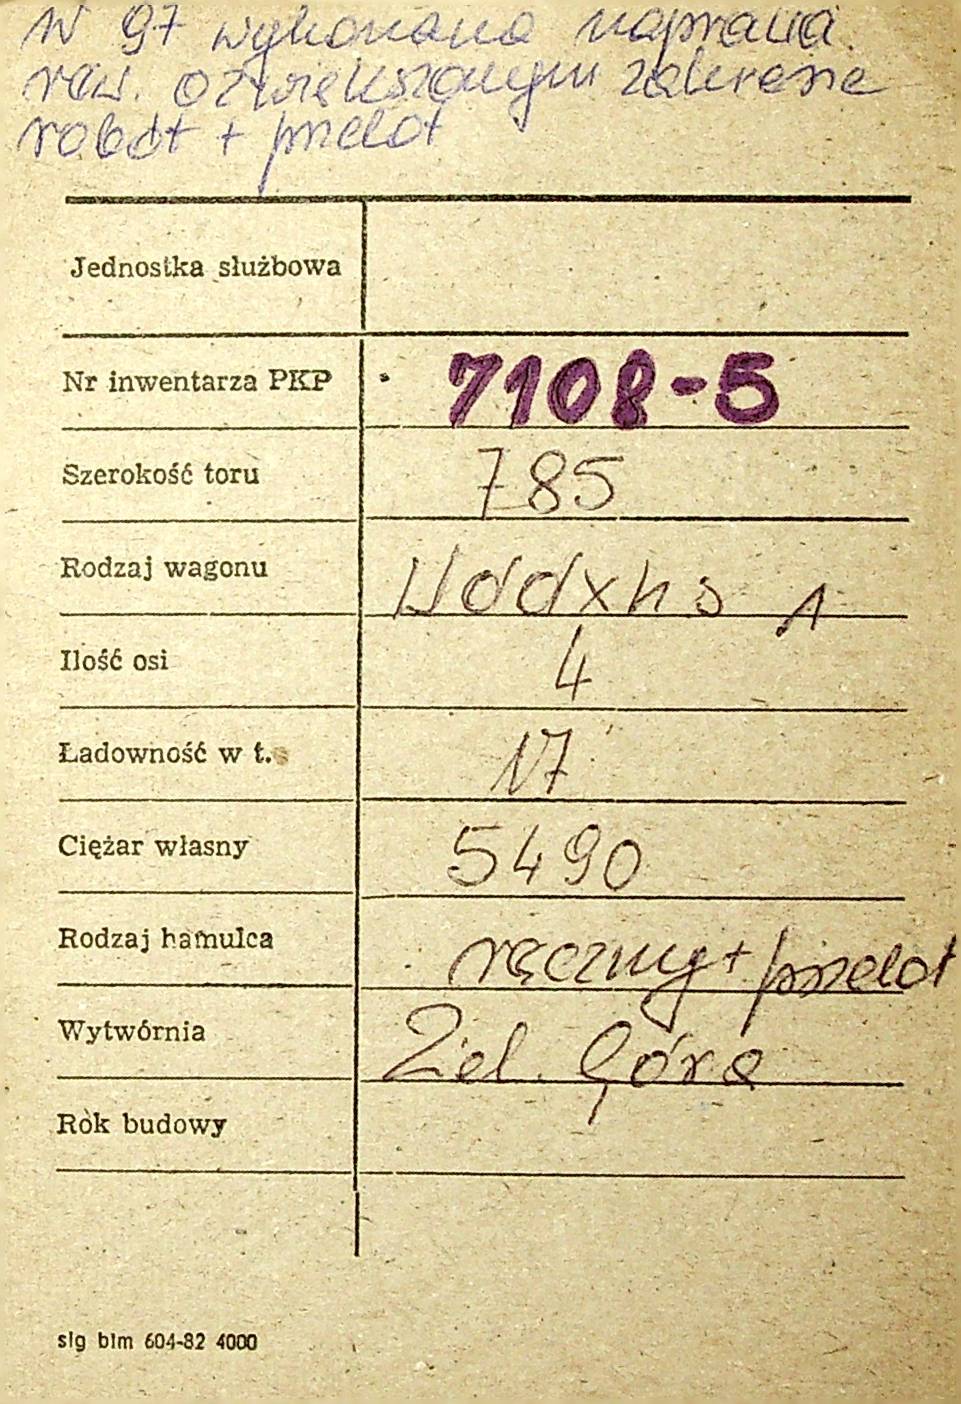 W 97 wykonano naprawa
rew. o zwiększonym zakresie
robót + przelot
Jednostka służbowa
Nr inwentarza PKP 7108-5
Szerokość toru 785
Rodzaj wagonu Uddxhs 1
Ilość osi 4
Ładowność w t. 17
Ciężar własny 5490
Rodzaj hamulca ręczny + przelot
Wytwórnia Ziel. Góra
Rok budowy
slg blm 604-82 4000